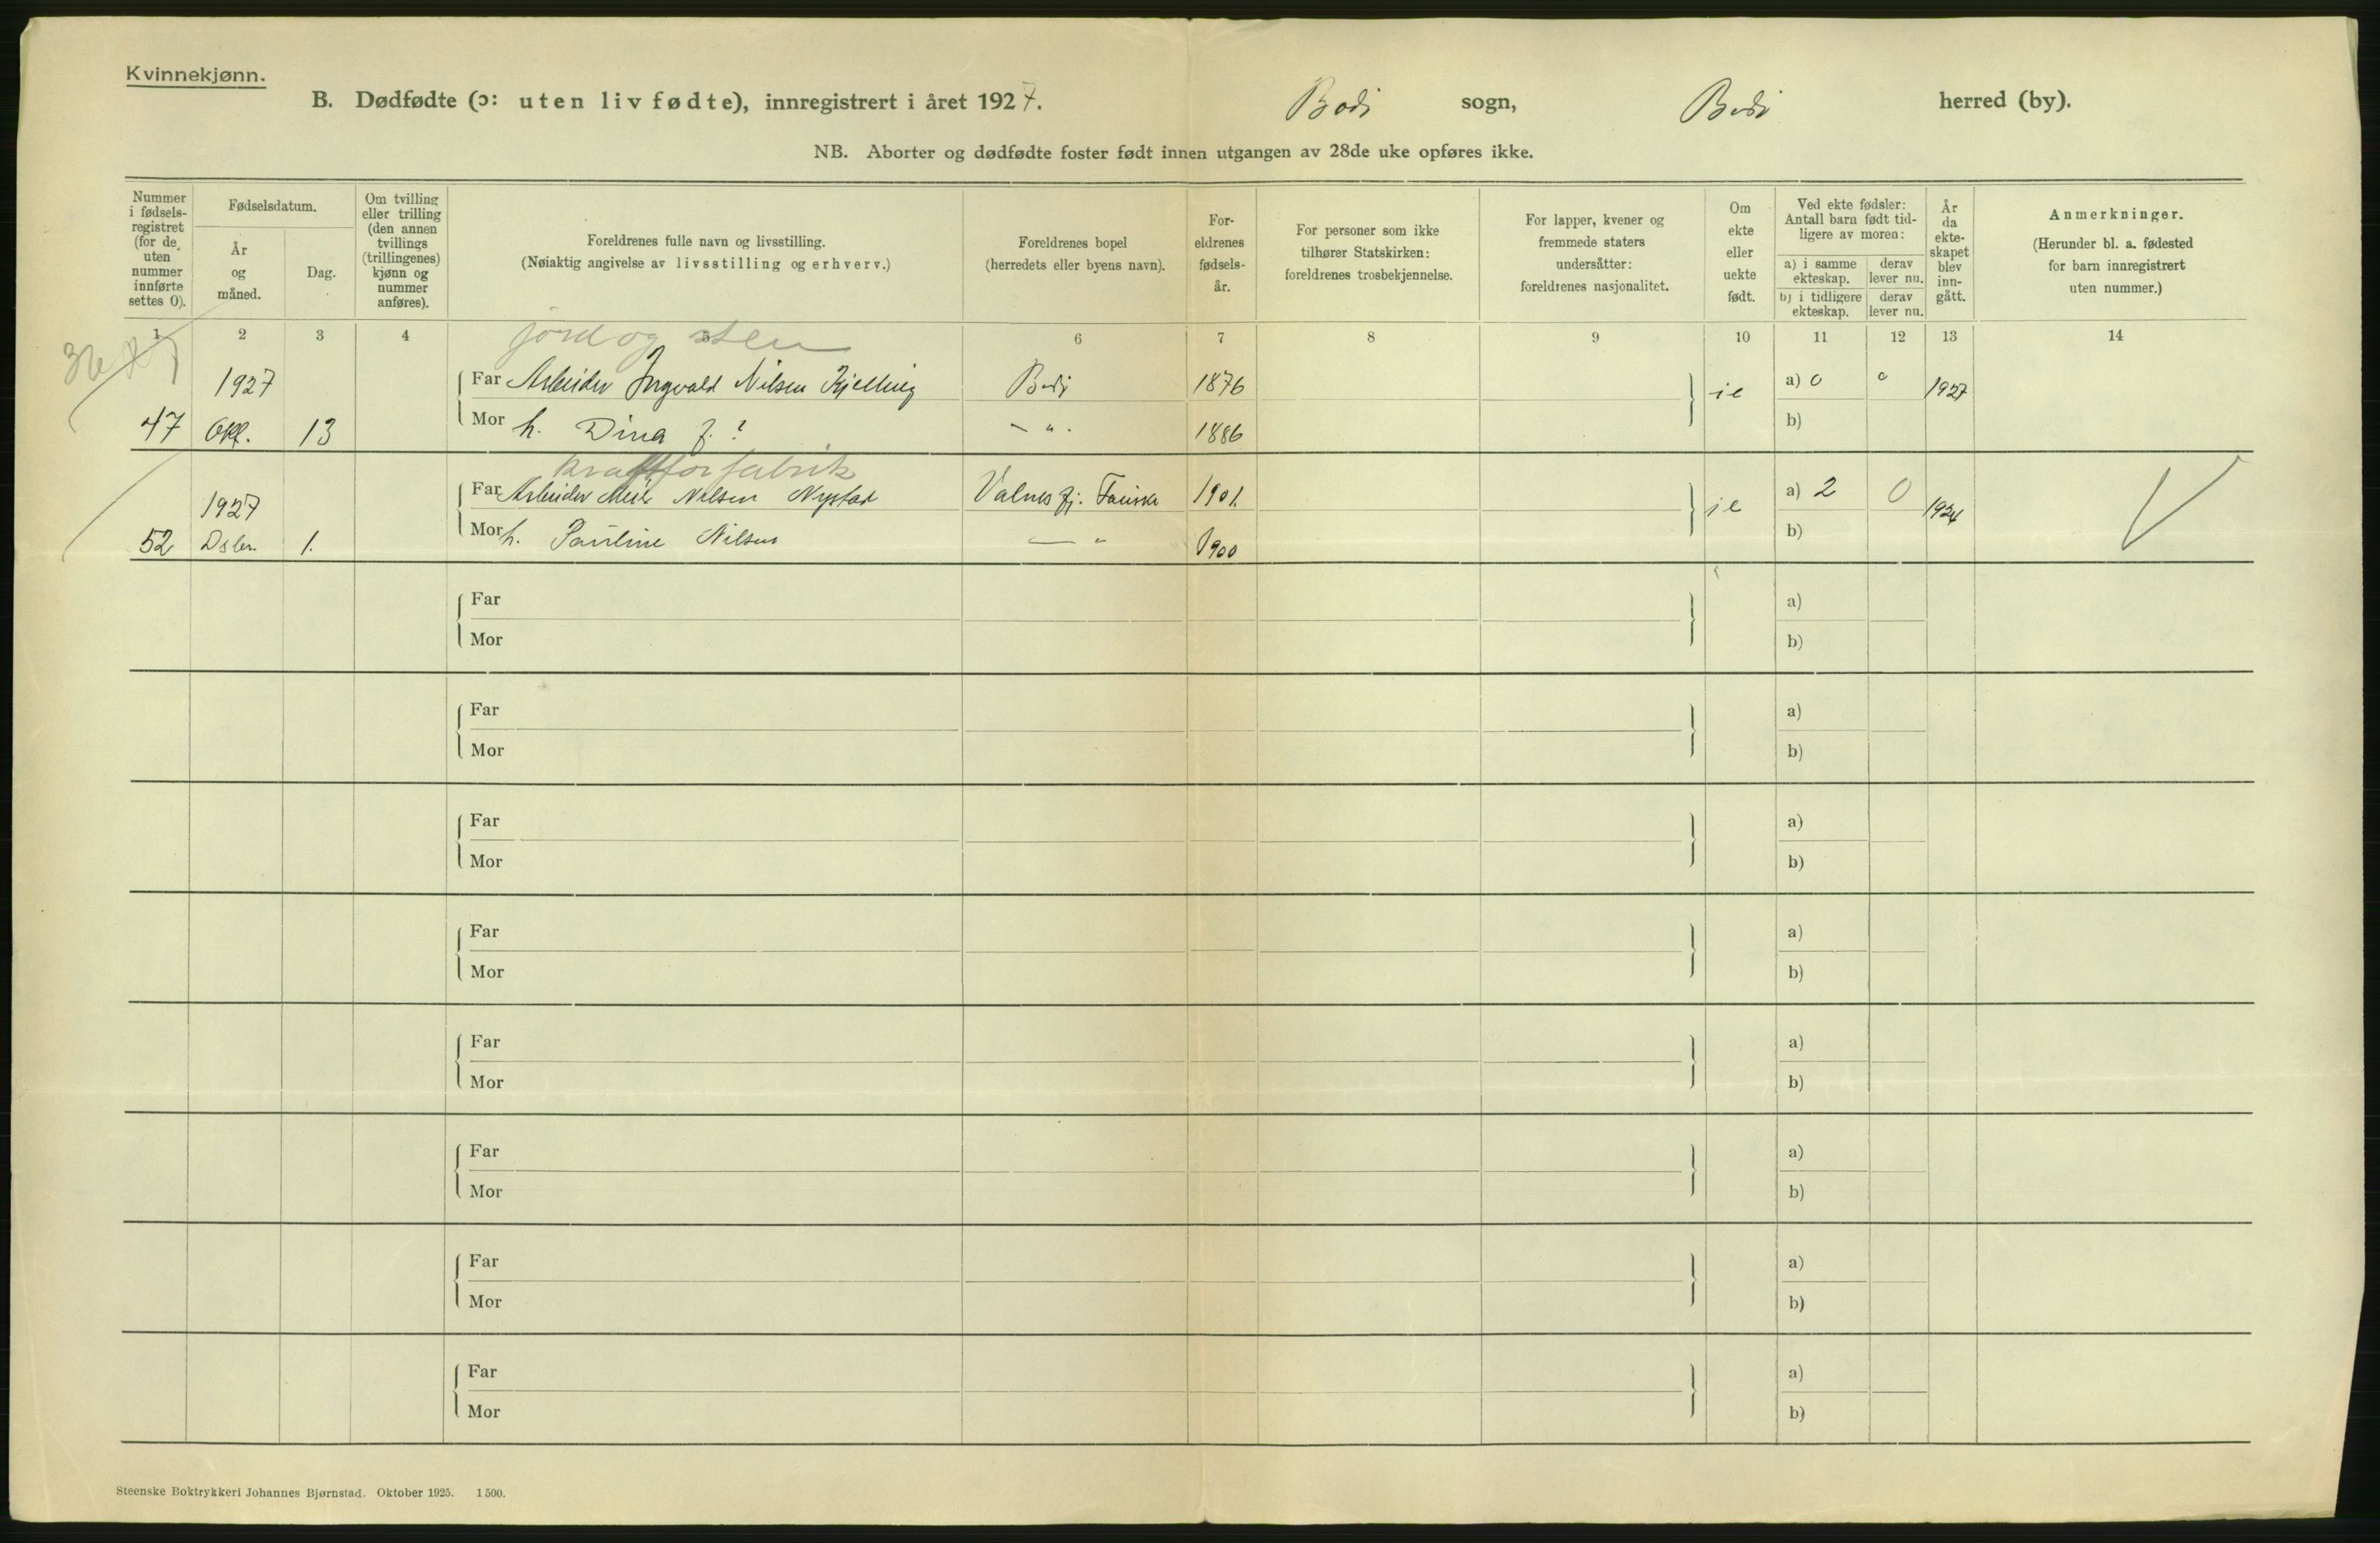 Kvinnekjønn.
B. Dødfødte (ɔ: uten liv fødte), innregistrert i året 1927. Bodø sogn, Bodø herred (by).
NB. Aborter og dødfødte foster født innen utgangen av 28de uke opføres ikke.
Nummer i fødsels-registret (for de uten nummer innførte settes 0).
Fødselsdatum.
År og måned.
Dag.
Om tvilling eller trilling (den annen tvillings (trillingenes) kjønn og nummer anføres).
Foreldrenes fulle navn og livsstilling.
(Nøiaktig angivelse av livsstilling og erhverv.)
Foreldrenes bopel
(herredets eller byens navn).
For-eldrenes fødsels-år.
For personer som ikke tilhører Statskirken: foreldrenes trosbekjennelse.
For lapper, kvener og fremmede staters undersåtter: foreldrenes nasjonalitet.
Om ekte eller uekte født.
Ved ekte fødsler: Antall barn født tid-ligere av moren:
a) i samme ekteskap. derav lever nu.
b) i tidligere ekteskap. derav lever nu.
År da ekte-skapet blev inn-gått.
Anmerkninger.
(Herunder bl. a. fødested for barn innregistrert uten nummer.)
1 2 3 4 5 6 7 8 9 10 11 12 13 14
jord og sten
1927 Far Arbeider Ingvald Nilsen Kjelling Bodø 1876 ie a) 0 0 1927
47 Okt. 13 Mor h. Dina f. ? - " - 1886 b)
kraftforfabrik
1927 Far Arbeider Nilsen Nystad Valnesfj. Fauske 1901. ie a) 2 0 1924
52 Dsbr. 1. Mor h. Pauline Nilsen — " 1900 b)
Far a)
Mor b)
Far a)
Mor b)
Far a)
Mor b)
Far a)
Mor b)
Far a)
Mor b)
Far a)
Mor b)
Far a)
Mor b)
Far a)
Mor b)
Steenske Boktrykkeri Johannes Bjørnstad. Oktober 1925. 1500.